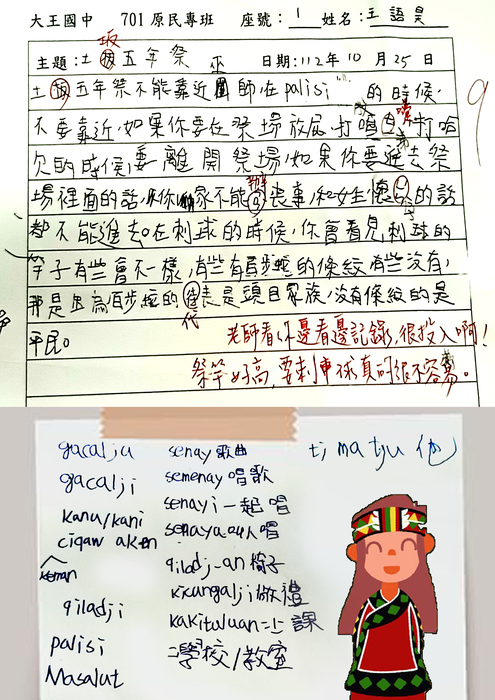 大王國中 701原民專班 座號：1 姓名：王語昊
坂
主題：土坂五年祭 日期：112年10月25日
巫
土坂五年祭不能靠近師，在palisi的時候，
不要靠近，如果你要在祭場放屁、打噴嚏、打哈
欠的時候，要離開祭場，如果你要進去祭
場裡面的話，你家不能辦喪事，和女生懷孕的話
都不能進去。在刺球的時候，你會看見刺球的
竿子有些會不一樣，有些有百步蛇的條紋有些沒有，
那是因為百步蛇的代表是頭目家族，沒有條紋的是
代
平民。
老師看你邊看邊記錄，很投入啊！
祭竿好高，要刺中球真的很不容易。
gacalju senay 歌曲 tjmatju 他
gacalji semenay 唱歌
kanu/kani senayi 一起唱
ciqaw aken senaya 叫人唱
keman qiladj-an 椅子
qiladji kicungalji 做禮
palisi kakituluan 上課
Masalut 學校/教室